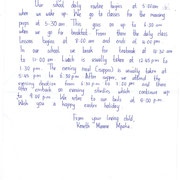 Our school daily routine begins at 5.00am
when we wake up. We go to classes for the morning
preps at 5:30 am. This goes on up to 6.30 am
when we go for breakfast from there the daily class
lessons begins at 8.00 am and ends at 4.00 pm.
In our school we break for tea break at 10:30 am
to 11:00 am. Lunch is usually taken at 12:45 pm to
1:30 pm. The evening meal (supper) is usually taken at
5:45 pm to 6:30 pm. After supper, we attend the
evening devotion from 6:30 pm to 7:30 pm and then
embark on evening studies which continue up
to 9.00 pm. We retire to our beds at 9:00 pm
Wish you a happy easter holiday.
From your loving child,